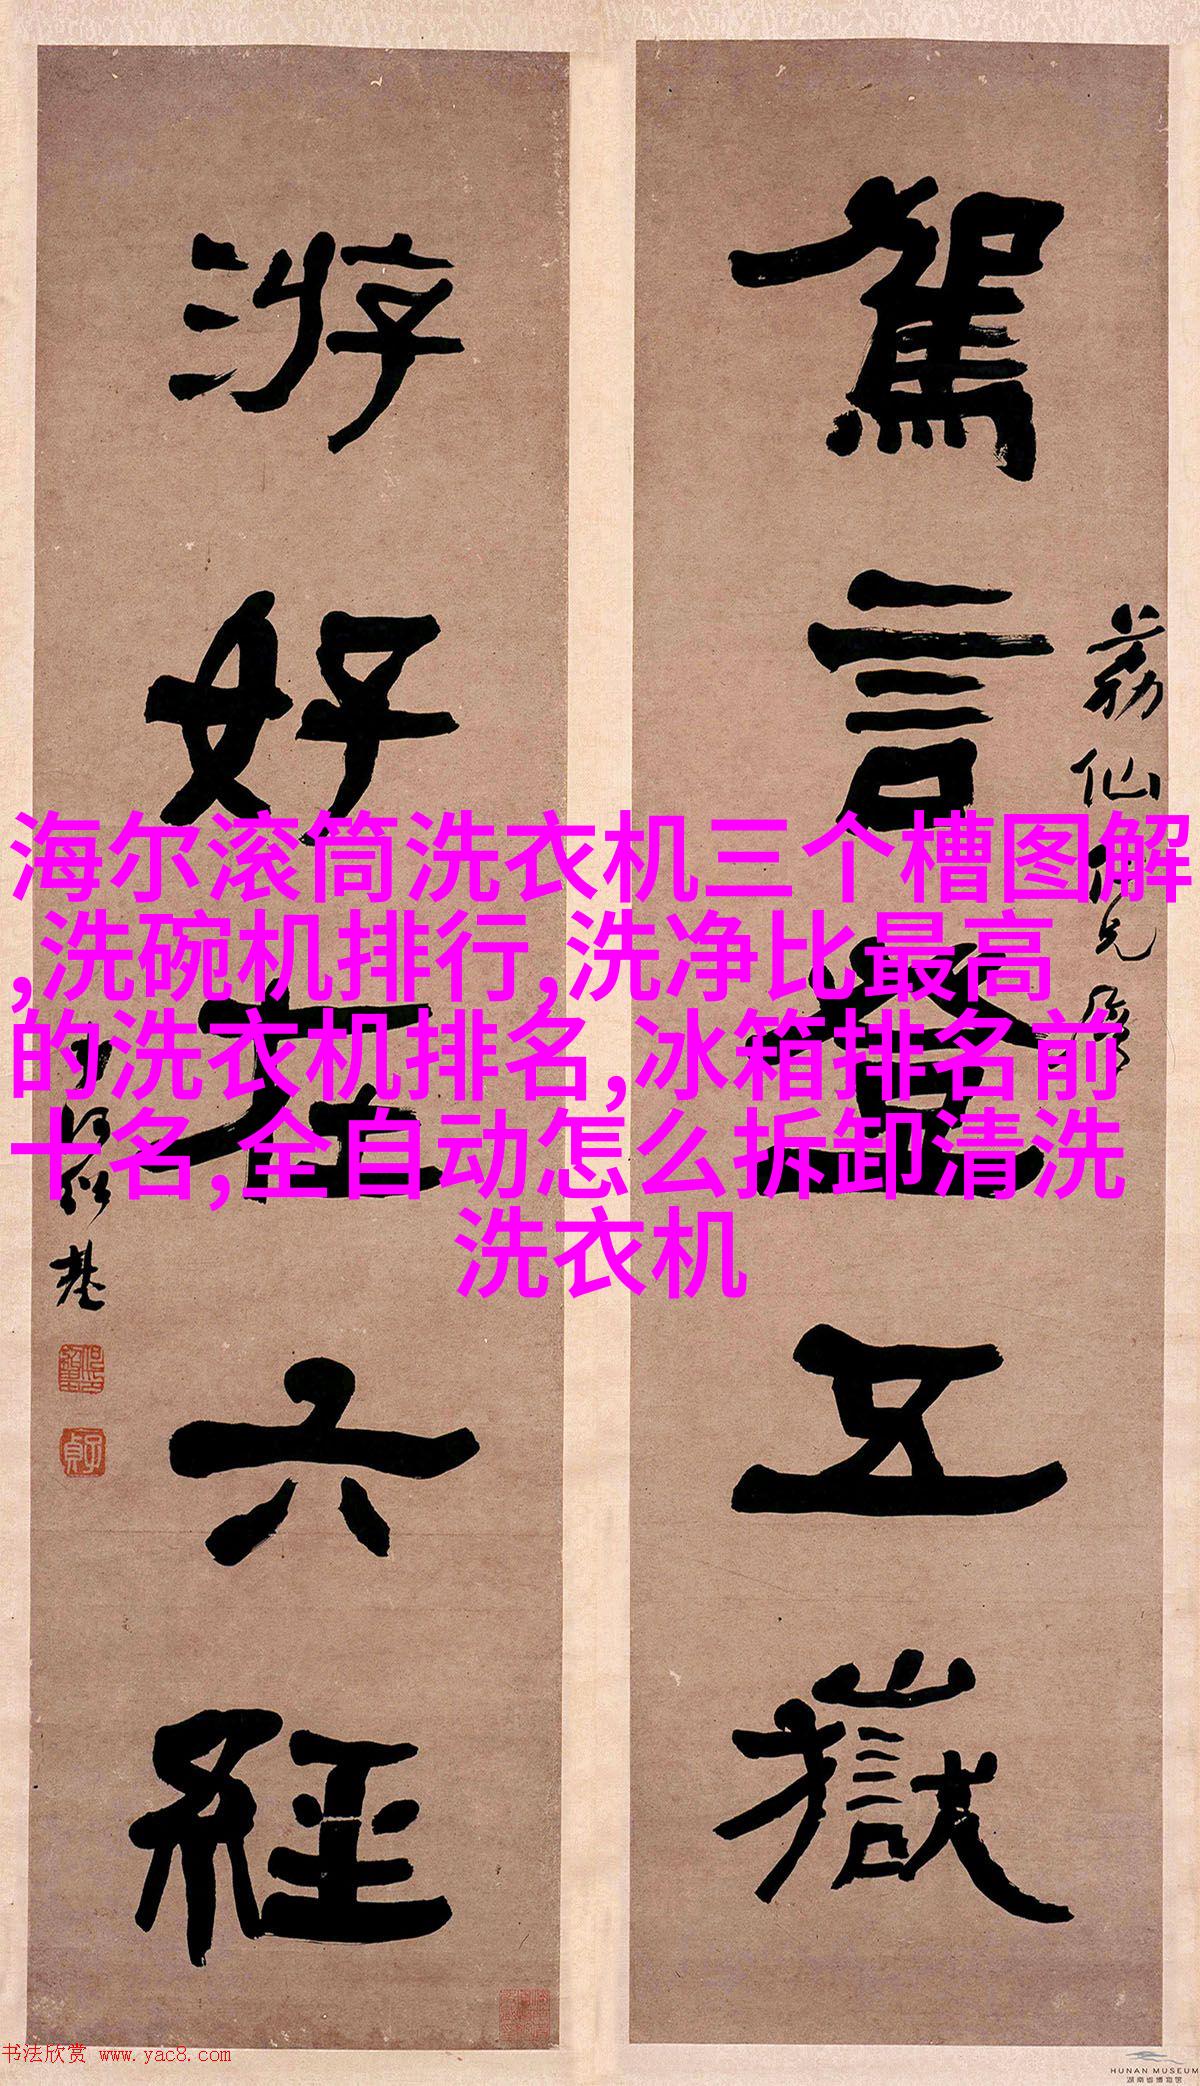 駕言登五嶽
荔仙仁兄屬
游好在六經
何紹基
海尔滚筒洗衣机三个槽图解
,洗碗机排行,洗净比最高
的洗衣机排名,冰箱排名前
十名,全自动怎么拆卸清洗
洗衣机
书法欣赏 www.yac8.com
HUNAN MUSEUM
湖南省博物馆